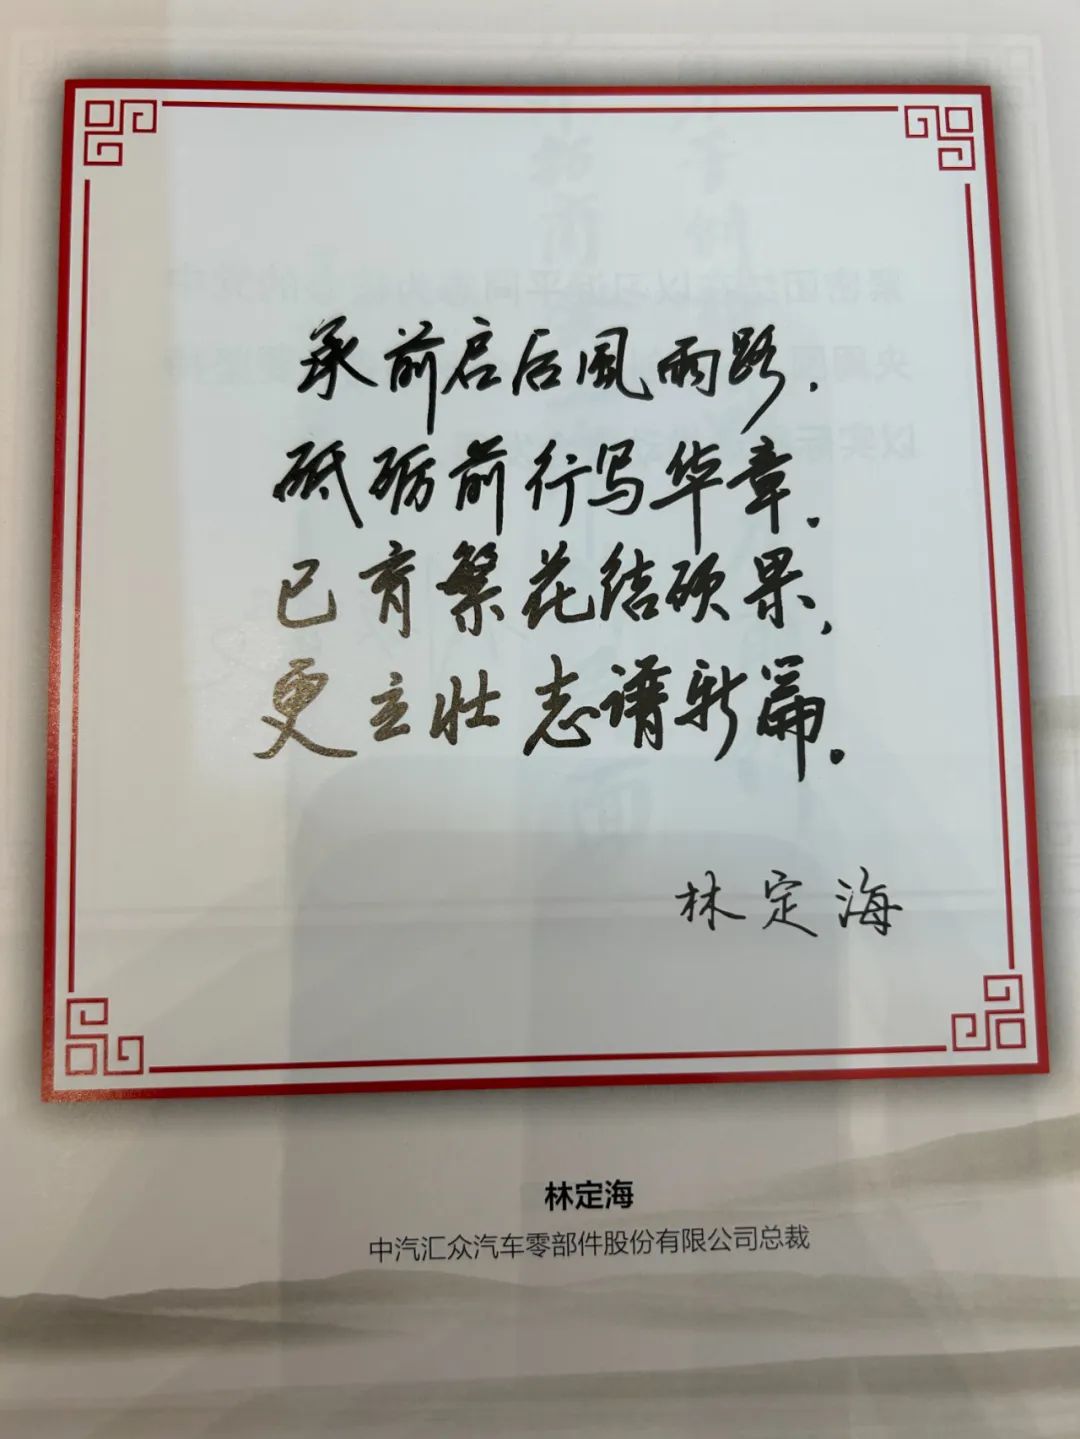 承前启后風雨路.
砥砺前行写华章.
已育繁花结硕果,
更立壮志谱新篇.
林定海
林定海
中汽汇众汽车零部件股份有限公司总裁